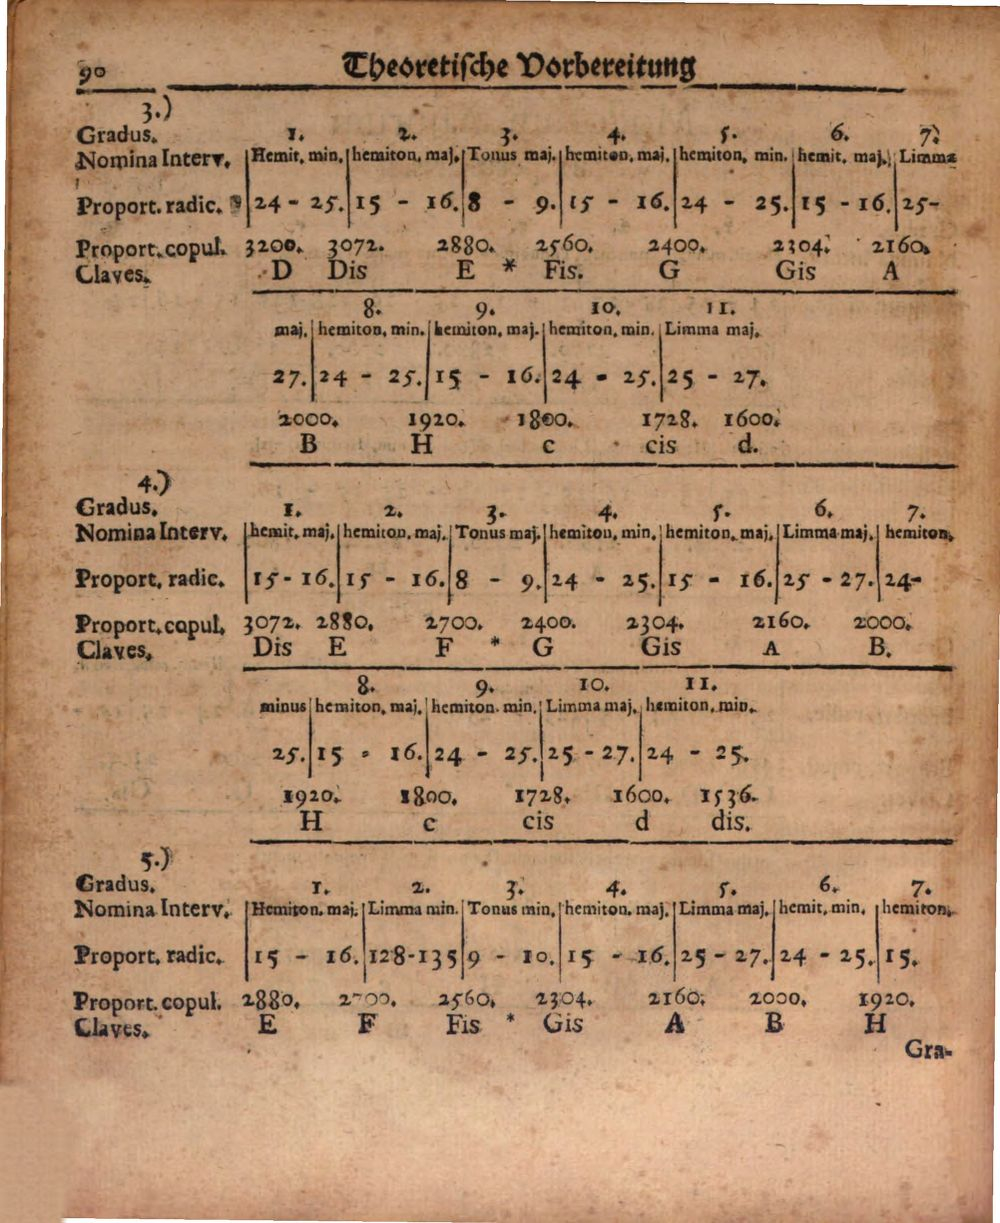 90 Theoretische Vorbereitung
3.)
Gradus. 1. 2. 3. 4. 5. 6. 7.
Nomina Interv. Hemit. min. hemiton. maj. Tonus maj. hemiton. maj. hemiton. min. hemit. maj. Limma
Proport. radic. 24 - 25. 15 - 16. 8 - 9. 15 - 16. 24 - 25. 15 - 16. 25-
Proport. copul. 3200. 3072. 2880. 2560. 2400. 2304. 2160.
Claves. D Dis E * Fis. G Gis A
8. 9. 10. 11.
maj. hemiton. min. hemiton. maj. hemiton. min. Limma maj.
27. 24 - 25. 15 - 16. 24 - 25. 25 - 27.
2000. 1920. 1800. 1728. 1600.
B H c cis d.
4.)
Gradus. 1. 2. 3. 4. 5. 6. 7.
Nomina Interv. hemit. maj. hemiton. maj. Tonus maj. hemiton. min. hemiton. maj. Limma maj. hemiton.
Proport. radic. 15 - 16. 15 - 16. 8 - 9. 24 - 25. 15 - 16. 25 - 27. 24-
Proport. copul. 3072. 2880. 2700. 2400. 2304. 2160. 2000.
Claves. Dis E F * G Gis A B.
8. 9. 10. 11.
minus hemiton. maj. hemiton. min. Limma maj. hemiton. min.
25. 15 - 16. 24 - 25. 25 - 27. 24 - 25.
1920. 1800. 1728. 1600. 1536.
H c cis d dis.
5.)
Gradus. 1. 2. 3. 4. 5. 6. 7.
Nomina Interv. Hemiton. maj. Limma min. Tonus min. hemiton. maj. Limma maj. hemit. min. hemiton.
Proport. radic. 15 - 16. 128-135 9 - 10. 15 - 16. 25 - 27. 24 - 25. 15.
Proport. copul. 2880. 2700. 2560. 2304. 2160. 2000. 1920.
Claves. E F Fis * Gis A B H
Gra-